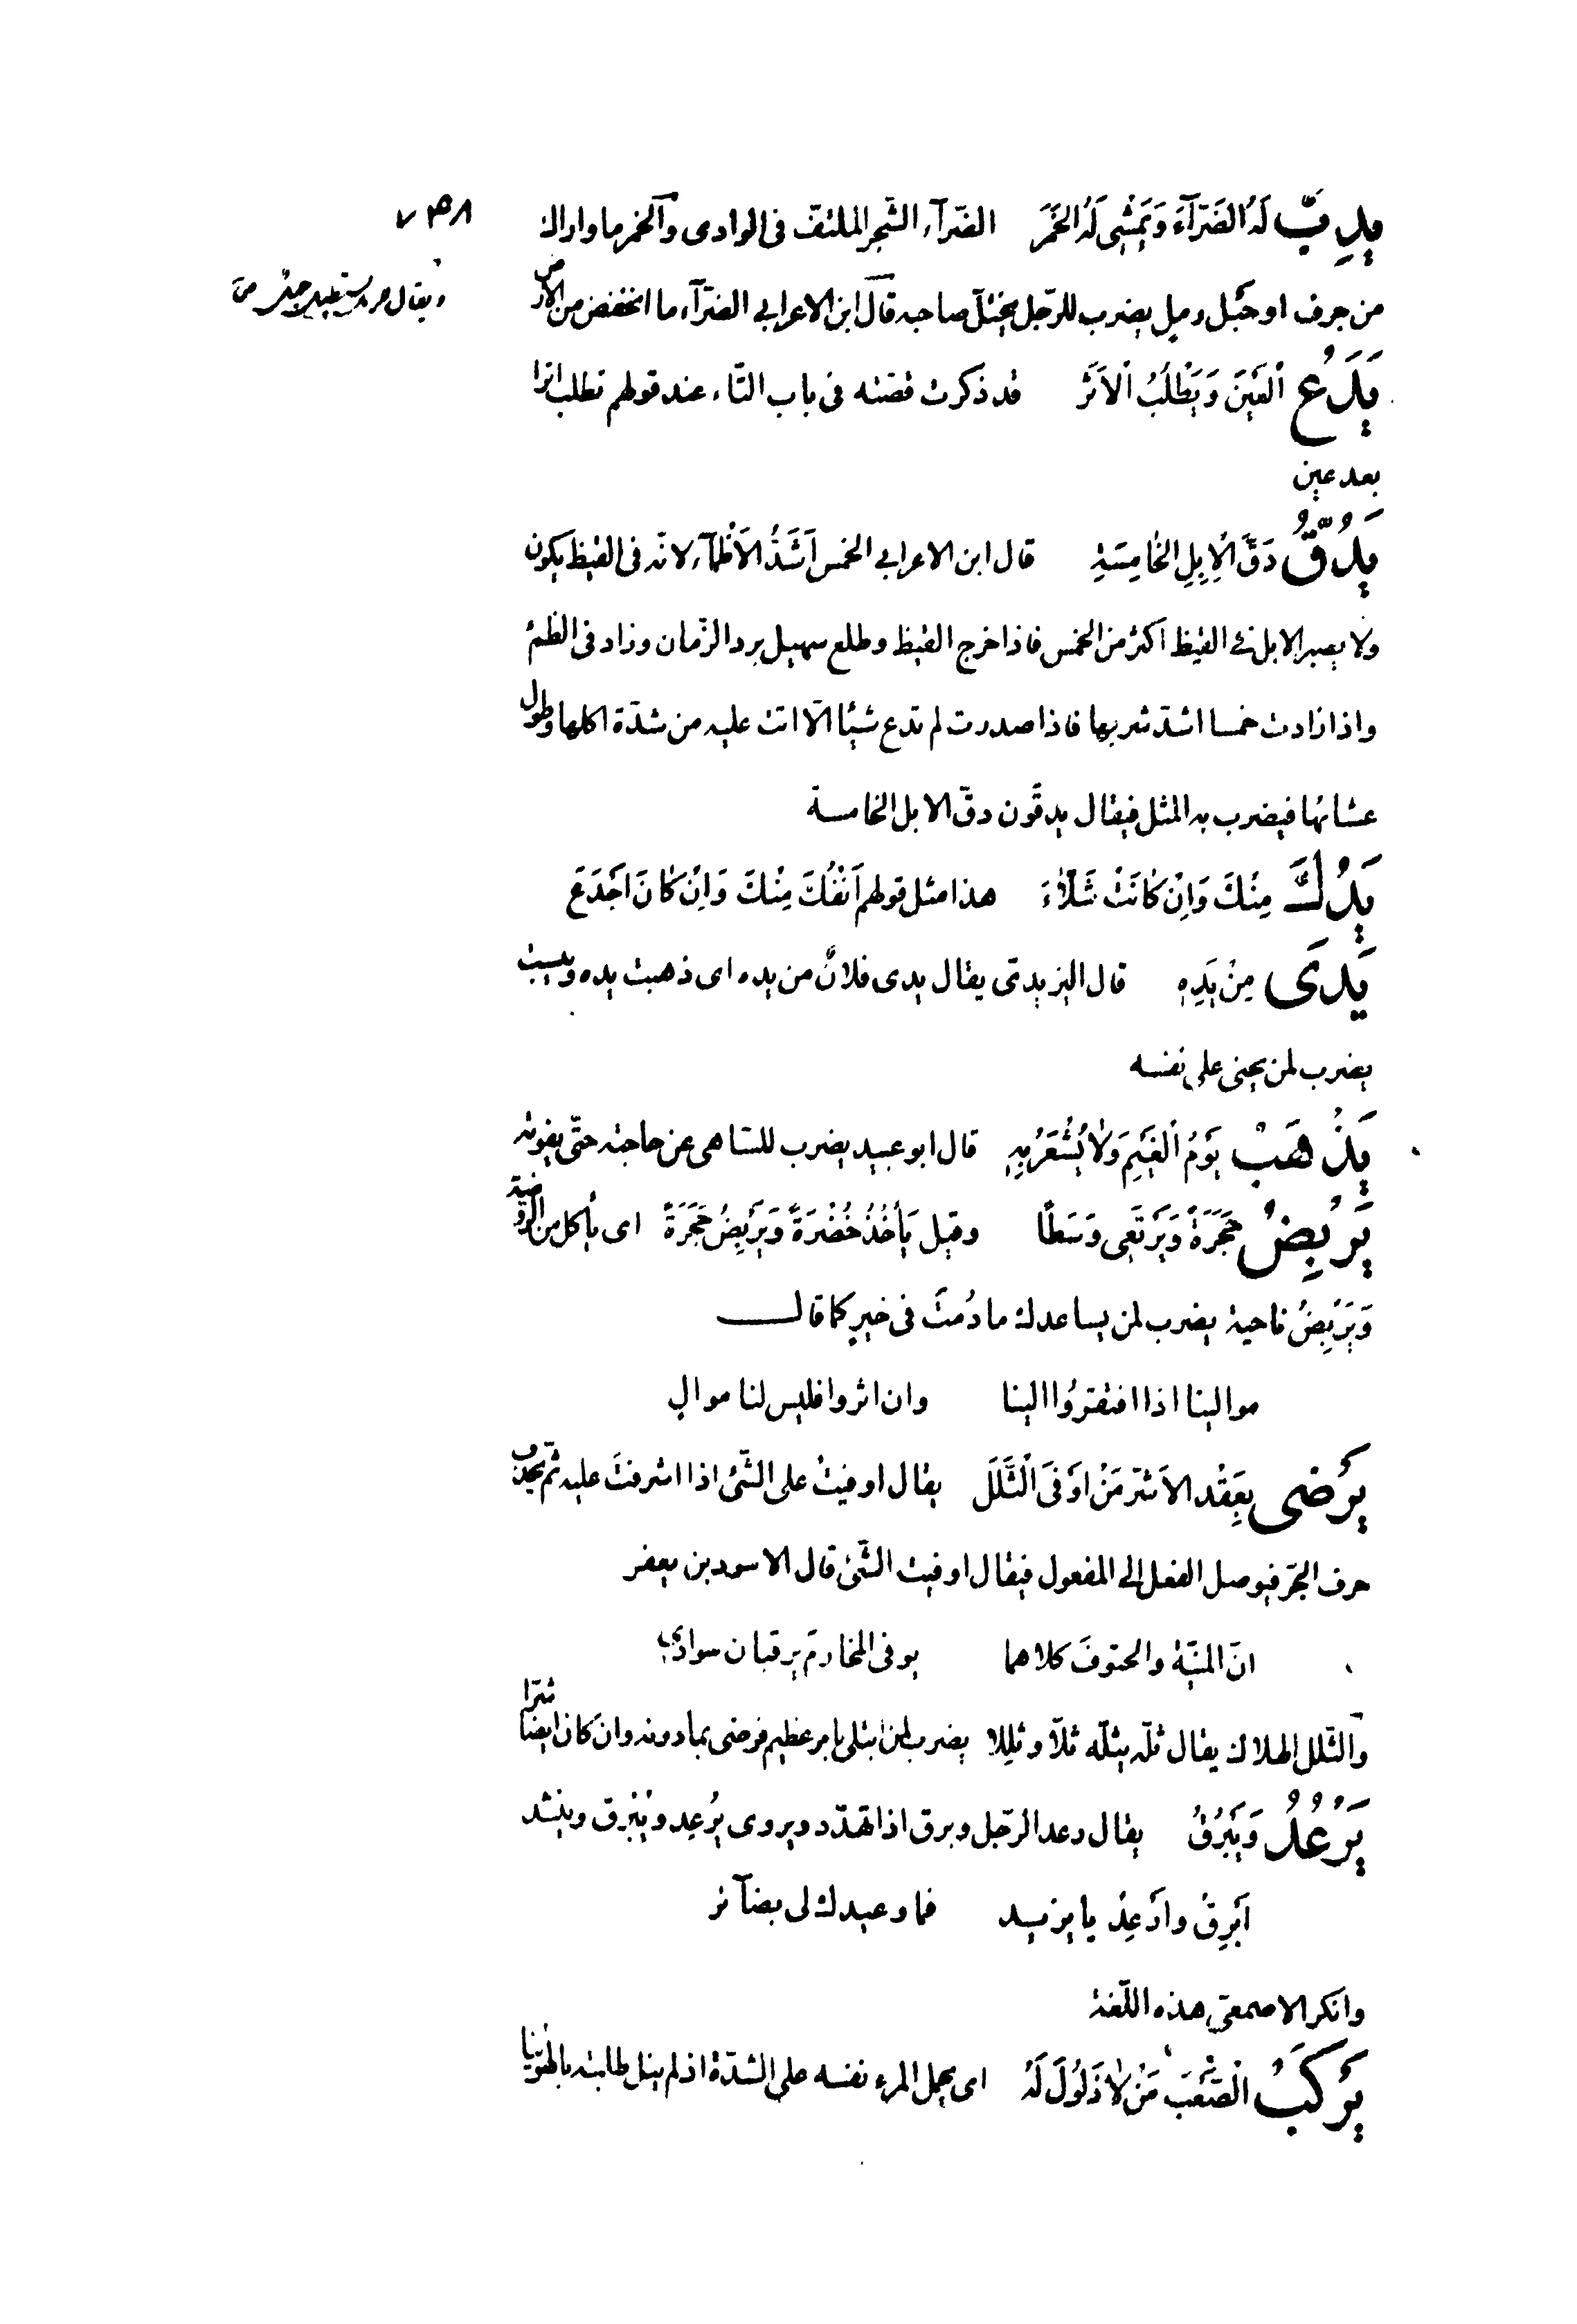 ٧٣٨
يَدِبُّ لَهُ الضَرَّآءَ وَيَمْشِى لَهُ الخَمَرَ الضّرآء الشّجر الملتفّ فى الوادى والخمر ما واراك
من جرف او حَبْل رمل يضرب للرّجل يختل صاحبه قال ابن الاعرابي الضرّآء ما انخفض من الارض
ويقال
يَدَعُ الْعَيْنَ وَيَطْلُبُ الْاَثَر قد ذكرت قصّته فى باب التّاء عند قولهم تطلب اثرا
بعد عين
يَدُقُّ دَقَّ الْاِبِلِ الخَامِسَةِ قال ابن الاعرابي الخمس اَشَدُّ الْاَظْمآء لانّه فى القيظ يكون
ولا يصبر الابل فى القيظ اكثر من الخمس فاذا خرج القيظ وطلع سهيل برد الزّمان وزاد فى الظمئ
واذا زادت خمسا اشتدّ شربها فاذا صدرت لم تدع شيئا الّا اتت عليه من شدّة اكلها وطول
عشائها فيضرب به المثل فيقال يدقّون دقّ الابل الخامسة
يَدُكَ مِنْكَ وَاِنْ كَانَتْ شَلَّاءَ هذا مثل قولهم اَنْفُكَ مِنْكَ وَاِنْ كَانَ اَجْدَعَ
يَدِىَ مِنْ يَدِهِ قال اليزيدىّ يقال يدى فلانٌ من يده اى ذهبت يده ويبست
يضرب لمن يجنى على نفسه
يَذْهَبُ يَوْمُ الْغَيْمِ وَلَا يُشْعَرُ بِهِ قال ابو عبيد يضرب للسّاهى عن حاجته حتّى يفوته
يَرْبِضُ حَجَرَةً وَيَرْتَعِى وَسَطًا وقيل يَأْخُذُ خُضْرَةً وَيَرْبِضُ حَجَرَةً اى يأكل من الروضة
وَيَرْبِضُ ناحية يضرب لمن يساعدك ما دُمْتَ فى خيرٍ كما قال
موالينا اذا افتقرُوا الينا وان اثروا فليس لنا موالى
يَرْضَى بِعَقْدِ الاَسْرِ مَنْ اَوْفَى الثَّلَلَ يقال اوفيتُ على الشّئ اذا اشرفتَ عليه ثمّ يحذف
حرف الجرّ فيوصل الفعل الى المفعول فيقال اوفيت الشّئ قال الاسود بن يعفر
انّ المنيّة والحتوفَ كلاهما يوفى المخارمَ يرقبان سوادى
والثّلل الهلاك يقال ثلّه يثلّه ثلّا وثللا يضرب لمن ابتلى بامر عظيم فرضى بما دونه وان كان ايضا شرّا
يَرْعُدُ وَيَبْرُقُ يقال رعد الرّجل وبرق اذا تهدّد ويروى يُرْعِد ويُبْرِق وينشد
اَبْرِقْ واَرْعِدْ يا يزيد فما وعيدك لى بضآئر
وانكر الاصمعىّ هذه اللّغة
يَرْكَبُ الْصَّعْبَ مَنْ لَا ذَلُولَ لَهُ اى يحمل المرء نفسه على الشدّة اذ لم ينل طالبته بالهُوَيْنا